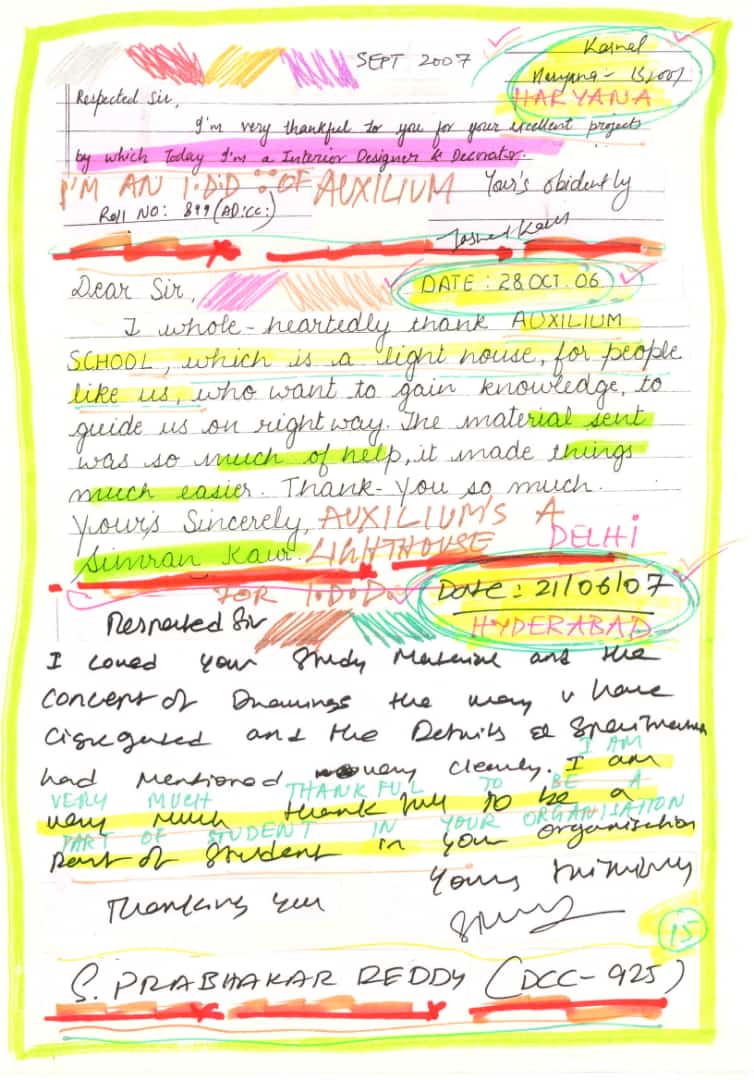 SEPT 2007
Karnal
Haryana -
HARYANA
Respected Sir,
I'm very thankful to you for your excellent projects
by which Today I'm a Interior Designer & Decorator.
I'M AN I.D.D OF AUXILIUM
Your's obidently
Roll NO: 899 (AD.CC.)
Kaur
Dear Sir,
DATE : 28 OCT. 06
I whole-heartedly thank AUXILIUM
SCHOOL, which is a light house, for people
like us, who want to gain knowledge, to
guide us on right way. The material sent
was so much of help, it made things
much easier. Thank-You so much.
Yours Sincerely,
AUXILIUM'S A
DELHI
Simran Kaur.
LIGHTHOUSE
FOR I.D.D.
Date : 21/06/07
HYDERABAD
Respected Sir
I loved your Study Material and the
concept of Drawings the way u have
and the Details &
had mentioned very clearly. I am
I AM
VERY MUCH THANKFUL TO BE A
very much thankful to be a
PART OF STUDENT IN YOUR ORGANISATION
Part of Student in your organisation
Yours
Thanking you
15
S. PRABHAKAR REDDY (DCC-925)